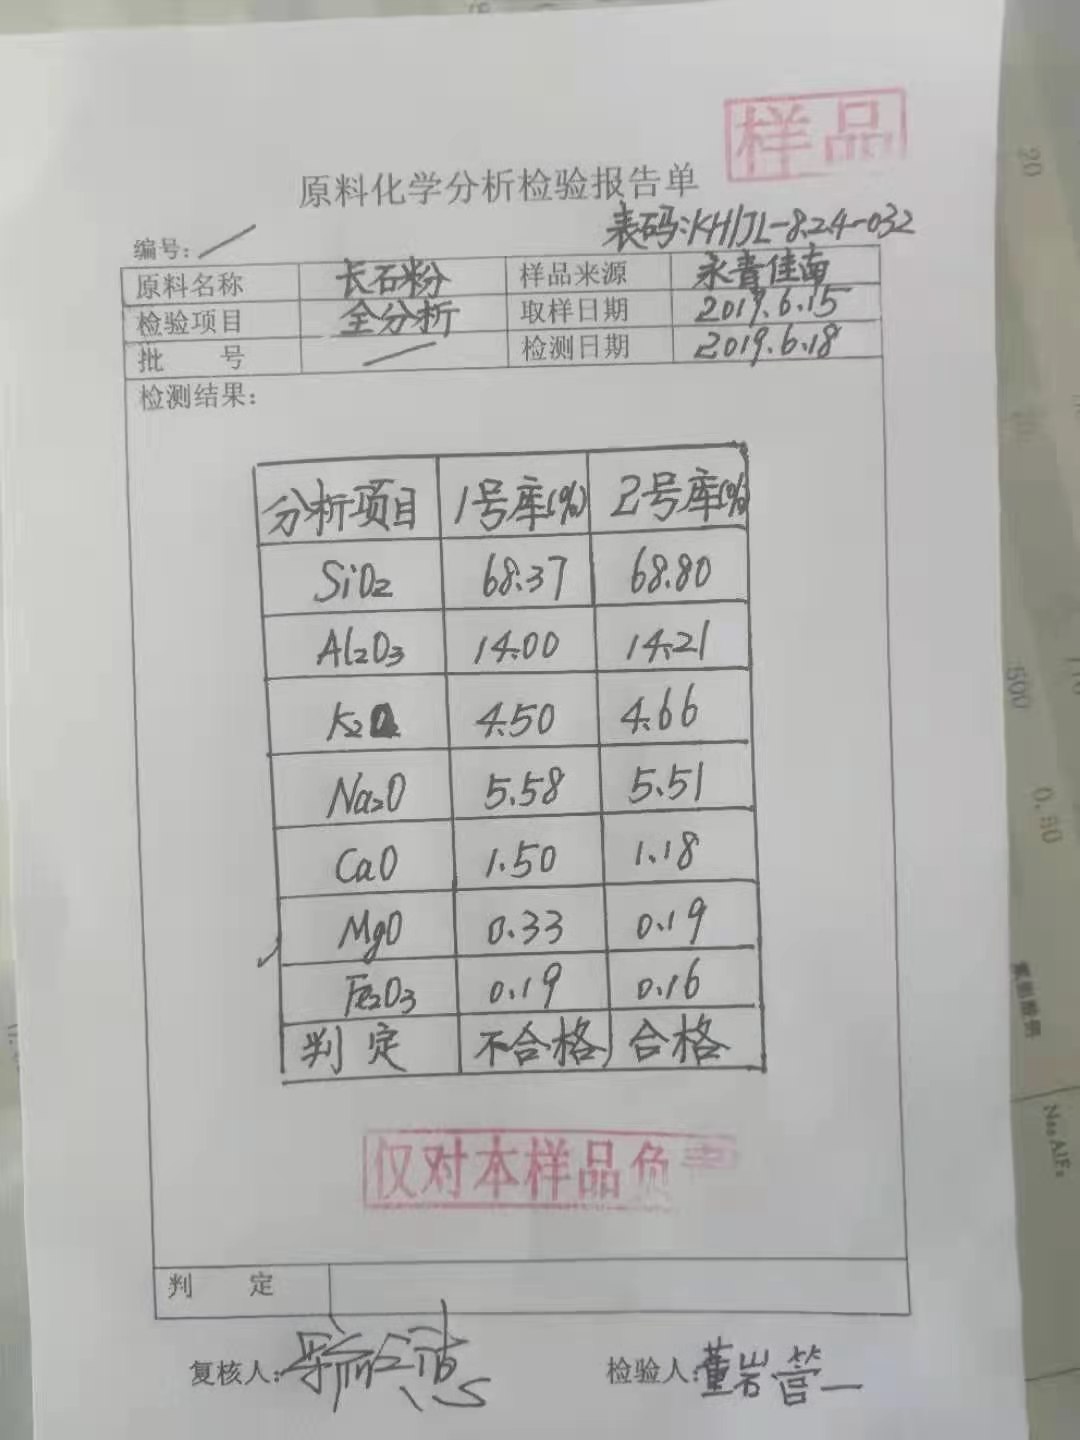 样品
原料化学分析检验报告单
表码:KH/JL-8.24-032
编号: /
原料名称 长石粉 样品来源 永青佳南
检验项目 全分析 取样日期 2019.6.15
批 号 / 检测日期 2019.6.18
检测结果:
分析项目 1号库(%) 2号库(%)
SiO₂ 68.37 68.80
Al₂O₃ 14.00 14.21
K₂O 4.50 4.66
Na₂O 5.58 5.51
CaO 1.50 1.18
MgO 0.33 0.19
Fe₂O₃ 0.19 0.16
判定 不合格 合格
仅对本样品负
判 定
复核人:
检验人:董岩
20
500
0.50
Na₃AlF₆